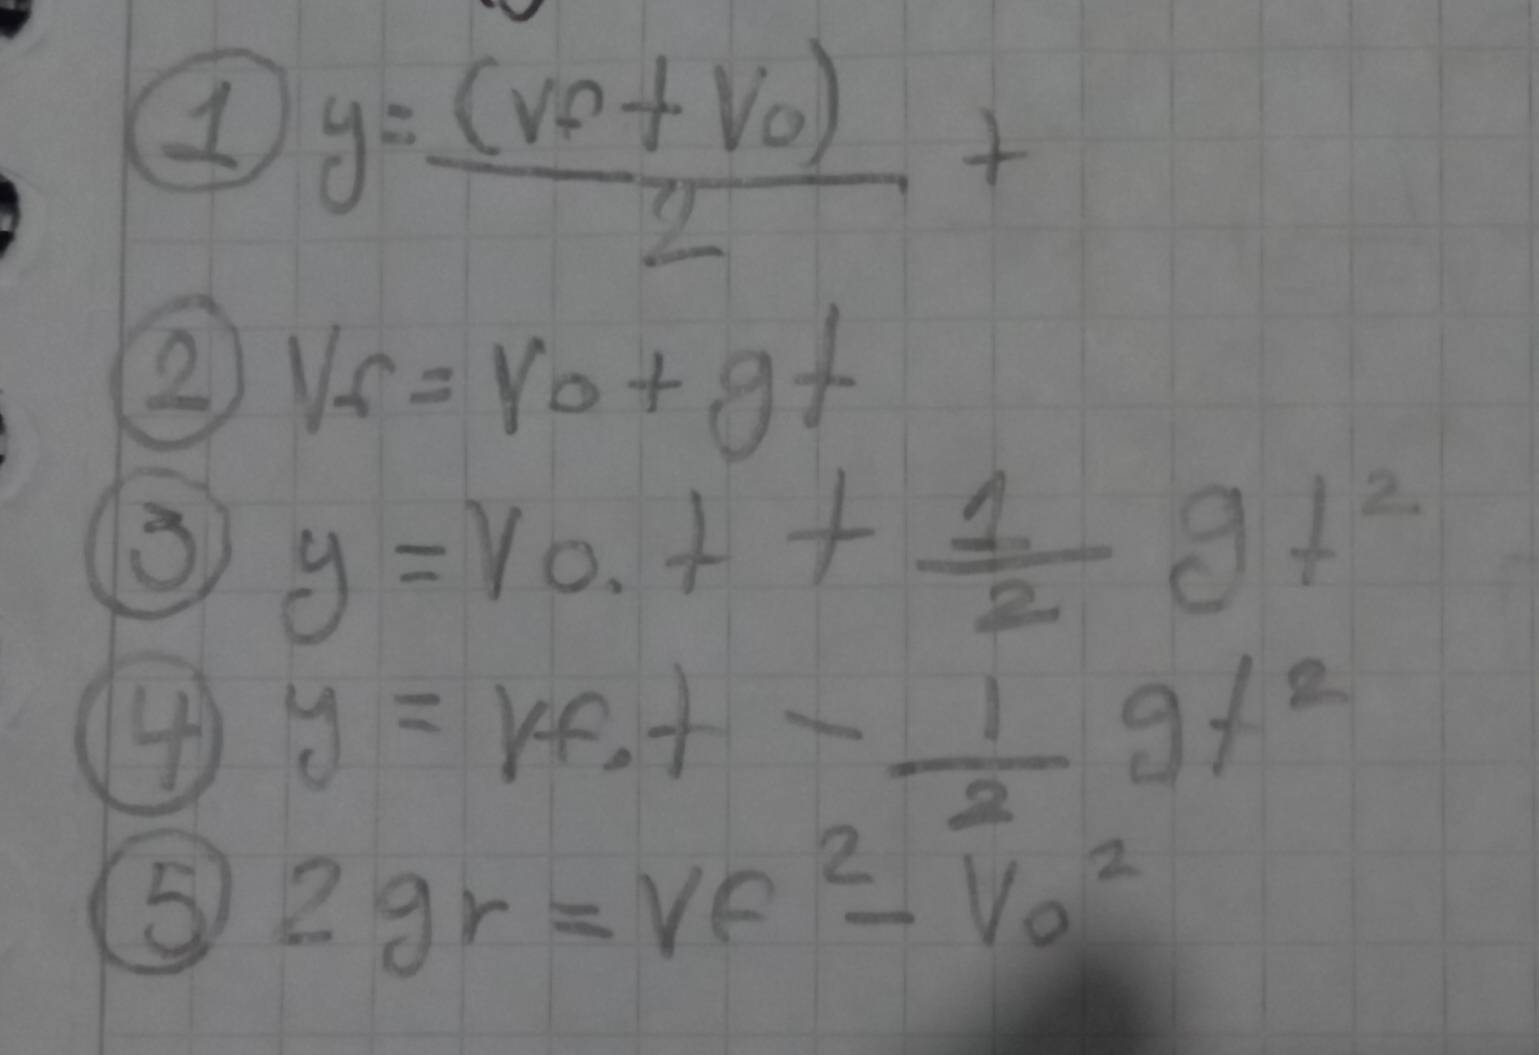 ① y = (Vf + Vo) / 2 t
② Vf = Vo + gt
③ y = Vo. t + 1/2 gt²
④ y = Vf. t - 1/2 gt²
⑤ 2gr = Vf² - Vo²